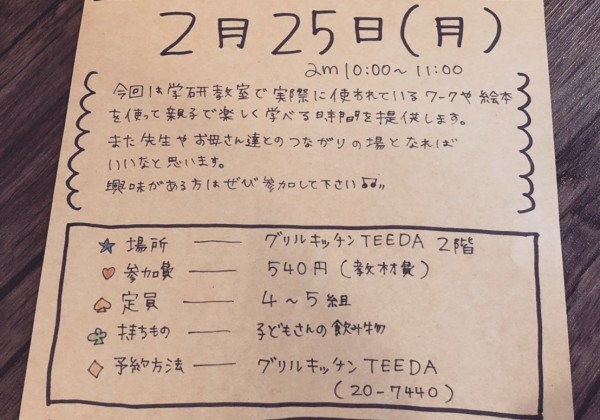 2月25日(月)
am10:00〜11:00
今回は学研教室で実際に使われているワークや絵本
を使って親子で楽しく学べる時間を提供します。
また先生やお母さん達とのつながりの場となれば
いいなと思います。
興味がある方はぜひ参加して下さい♫〃
★ 場所 ―― グリルキッチンTEEDA 2階
♡ 参加費 ―― 540円(教材費)
♤ 定員 ―― 4〜5組
♧ 持ちもの ―― 子どもさんの飲み物
◇ 予約方法 ―― グリルキッチンTEEDA
(20-7440)